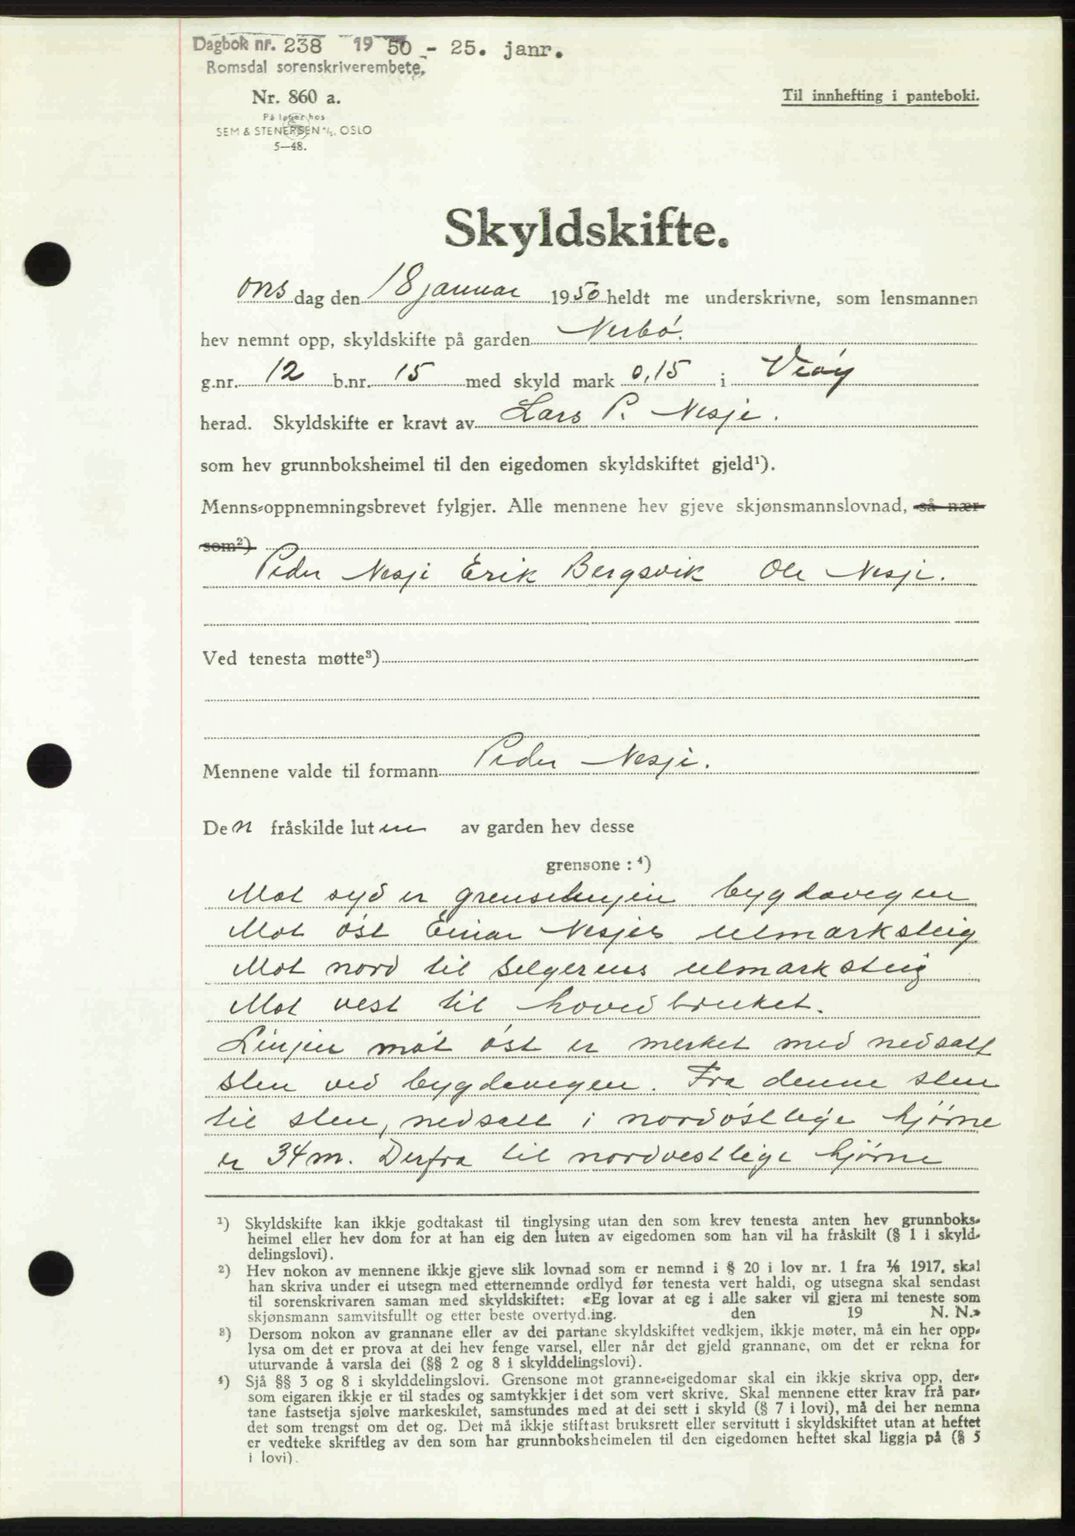 Dagbok nr. 238 1950 - 25. janr.
Romsdal sorenskriverembete,
Nr. 860 a.
Til innhefting i panteboki.
På lager hos
SEM & STENERSEN A/S, OSLO
5—48.
Skyldskifte.
ons dag den 18 januar 1950 heldt me underskrivne, som lensmannen
hev nemnt opp, skyldskifte på garden Nerbö.
g.nr. 12 b.nr. 15 med skyld mark 0,15 i Veöy
herad. Skyldskifte er kravt av Lars P. Nesje.
som hev grunnboksheimel til den eigedomen skyldskiftet gjeld¹).
Menns-oppnemningsbrevet fylgjer. Alle mennene hev gjeve skjønsmannslovnad, så nær
som²)
Peder Nesje Erik Bergsvik Ole Nesje.
Ved tenesta møtte³)
Mennene valde til formann Peder Nesje.
Den fråskilde luten av garden hev desse
grensone : ⁴)
Mot syd er grenselinjen bygdavegen
Mot öst Einar Nesjes utmarksteig
Mot nord til selgerens utmarksteig
Mot vest til hovedbruket.
Linjen mot öst er merket med nedsatt
sten ved bygdavegen. Fra denne sten
til sten, nedsatt i nordöstlige hjörne
er 34 m. Derfra til nordvestlige hjörne
¹) Skyldskifte kan ikkje godtakast til tinglysing utan den som krev tenesta anten hev grunnboks-
heimel eller hev dom for at han eig den luten av eigedomen som han vil ha fråskilt (§ 1 i skyld-
delingslovi).
²) Hev nokon av mennene ikkje gjeve slik lovnad som er nemnd i § 20 i lov nr. 1 fra ⅙ 1917, skal
han skriva under ei utsegn med etternemnde ordlyd før tenesta vert haldi, og utsegna skal sendast
til sorenskrivaren saman med skyldskiftet: «Eg lovar at eg i alle saker vil gjera mi teneste som
skjønsmann samvitsfullt og etter beste overtyding. den 19 N. N.»
³) Dersom nokon av grannane eller av dei partane skyldskiftet vedkjem, ikkje møter, må ein her opp-
lysa om det er prova at dei hev fenge varsel, eller når det gjeld grannane, om det er rekna for
uturvande å varsla dei (§§ 2 og 8 i skylddelingslovi).
⁴) Sjå §§ 3 og 8 i skylddelingslovi. Grensone mot granne-eigedomar skal ein ikkje skriva opp, der-
som eigaren ikkje er til stades og samtykkjer i det som vert skrive. Skal mennene etter krav frå par-
tane fastsetja sjølve markeskilet, samstundes med at dei sett i skyld (§ 7 i lovi), må dei her nemna
det som trengst om det og. Det må ikkje stiftast bruksrett eller servitutt i skyldskiftet utan at heftet
er vedteke skriftleg av den som har grunnboksheimelen til den eigedomen heftet skal liggja på (§ 5
i lovi).